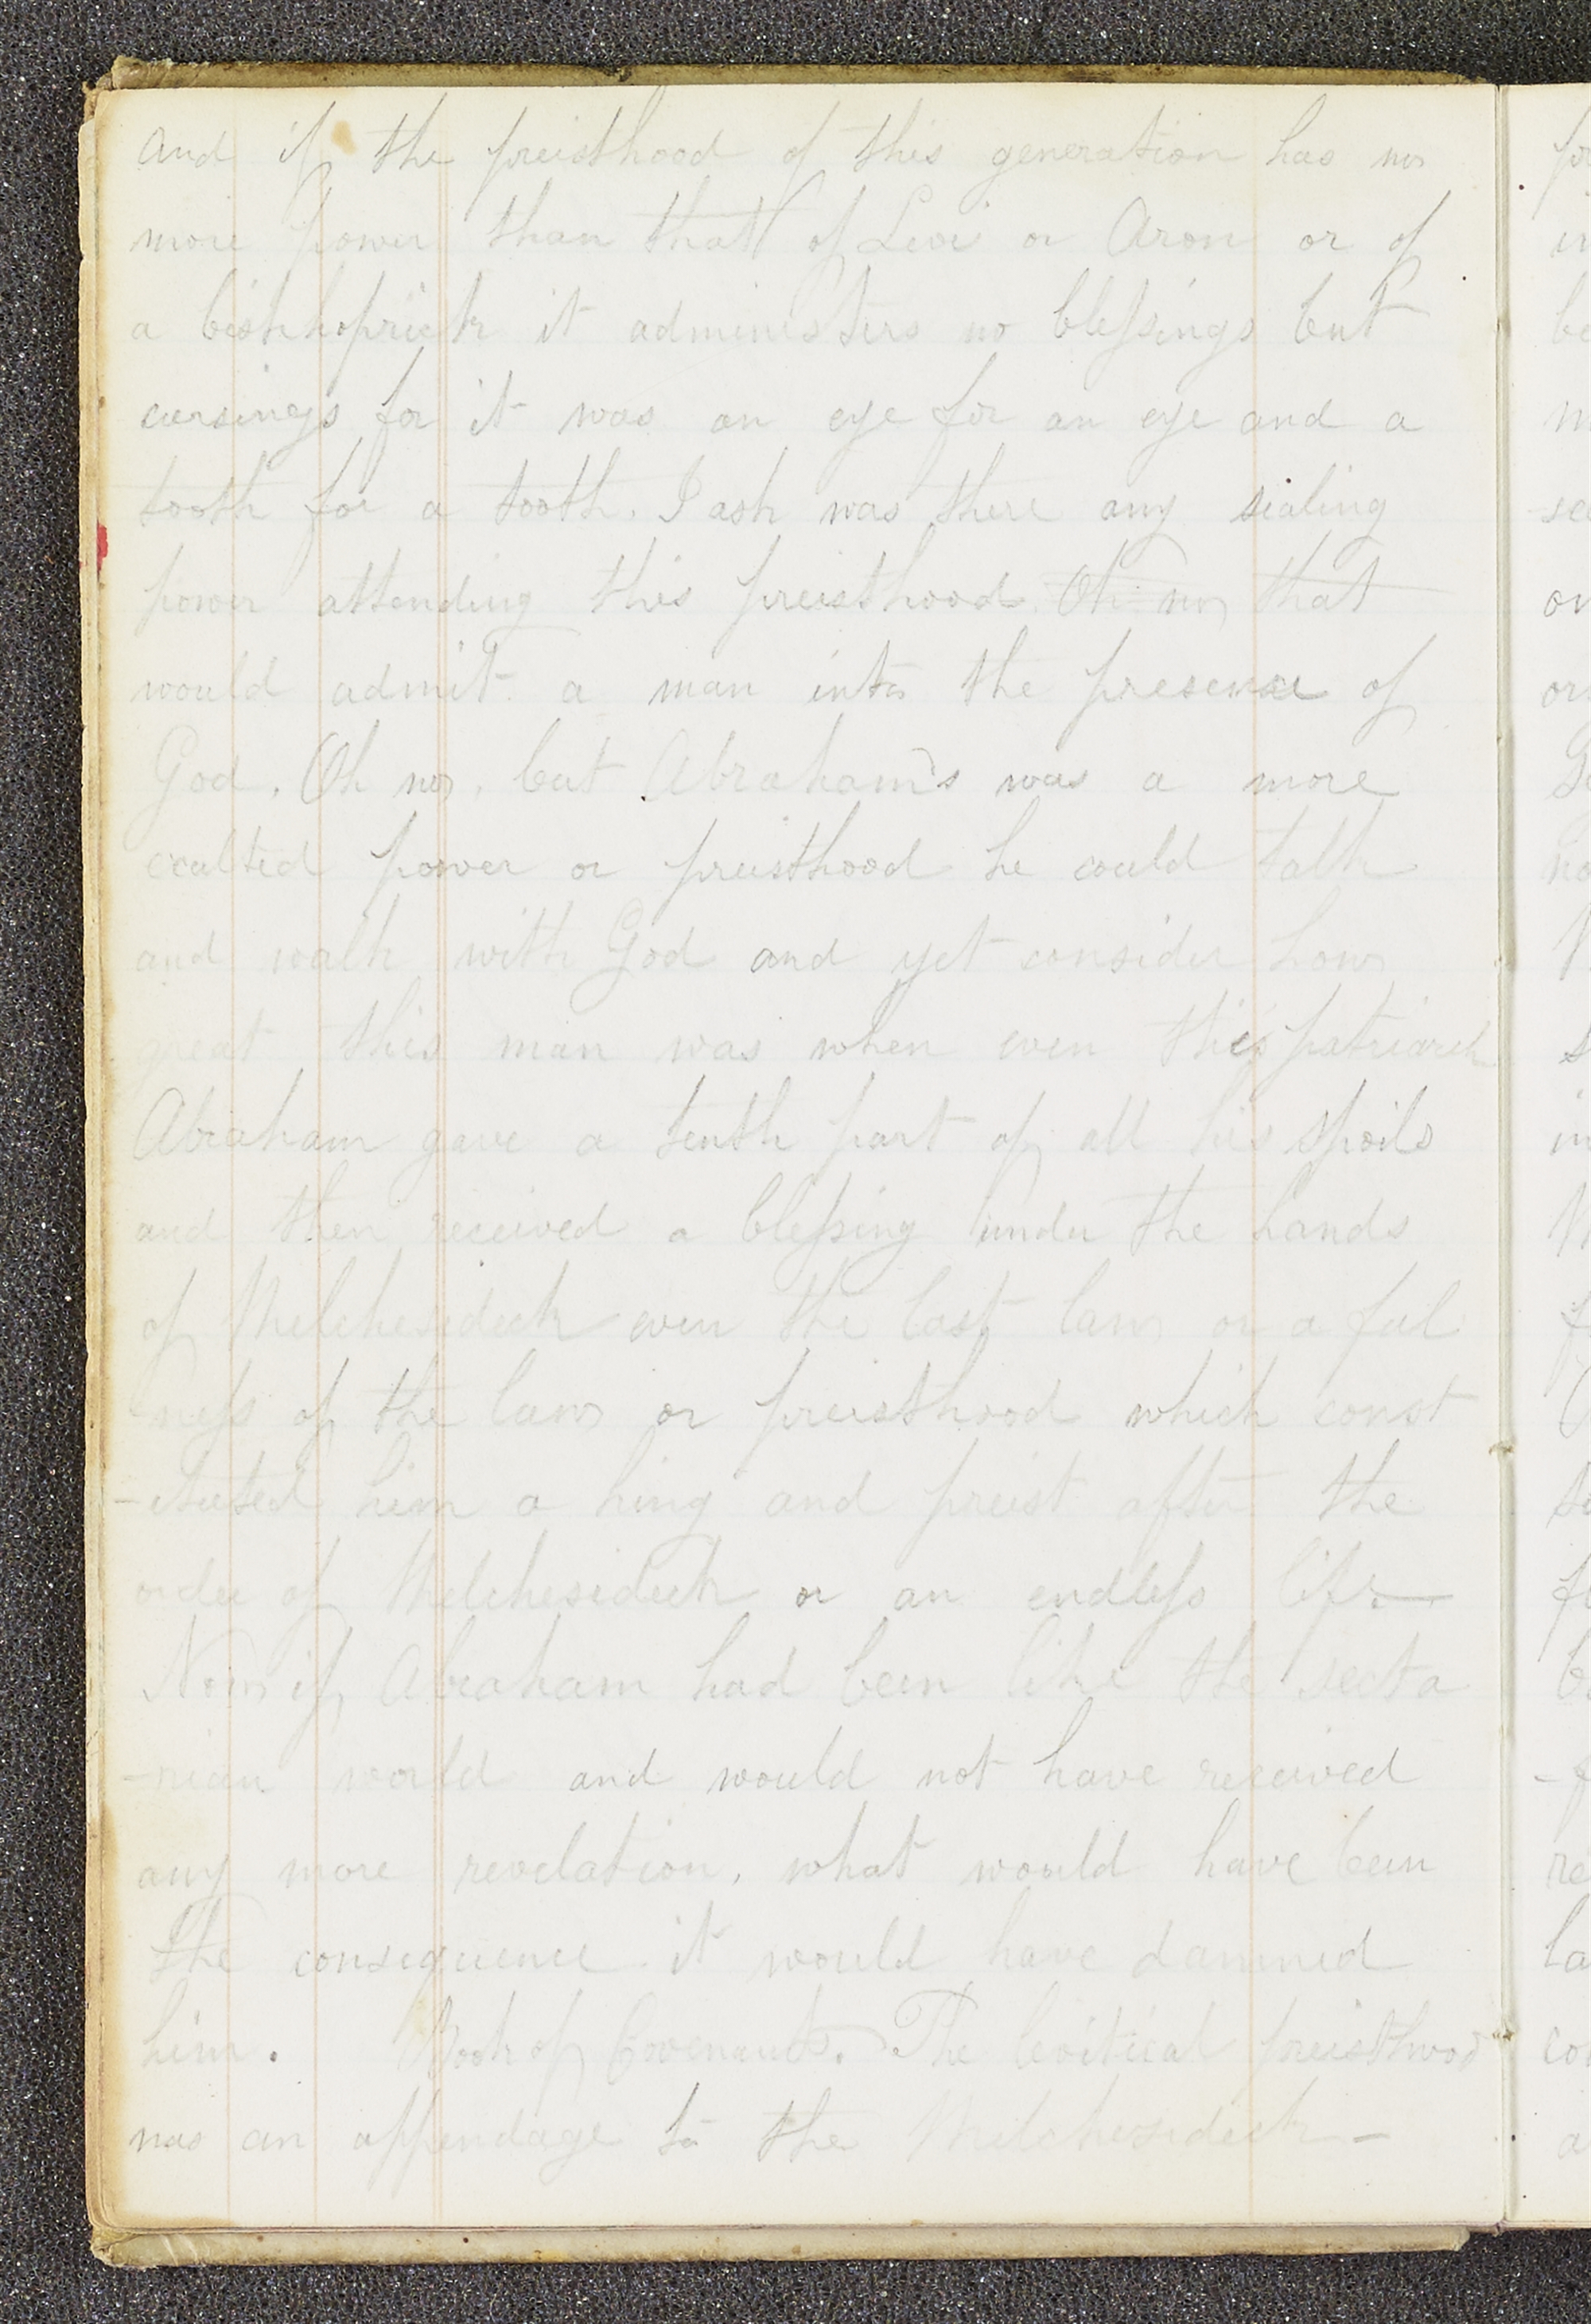 and if the preisthood of this generation has no
more power than that of Levi or Aron or of
a bishhoprick it administers no blessings but
cursings for it was an eye for an eye and a
tooth for a tooth. I ask was there any sealing
power attending this preisthood. Oh no, that
would admit a man into the presence of
God. Oh no, but Abraham's was a more
exalted power or preisthood he could talk
and walk with God and yet consider how
great this man was when even this patriarch
Abraham gave a tenth part of all his spoils
and then received a blessing under the hands
of Melchesideck even the last law or a ful
-ness of the law or preisthood which const
-ituted him a king and preist after the
order of Melchesideck or an endless life
Now if Abraham had been like the secta
-rian world and would not have received
any more revelation, what would have been
the consequence it would have damned
him. Book of Covenants. The levitical preisthood
was an appendage to the Melchesideck-